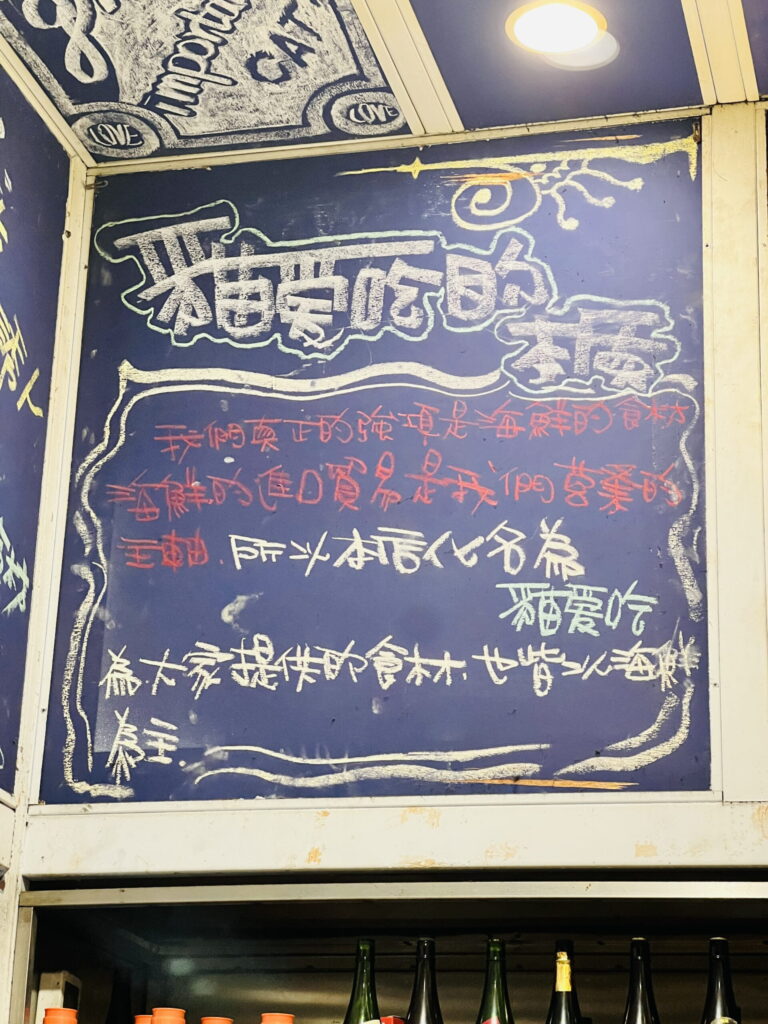 important
CAT
LOVE
LOVE
貓爱吃的
本質
我們真正的強項是海鮮的食材
海鮮的進口貿易是我們營業的
主軸. 所以本店化名為
貓爱吃
為大家提供的食材. 也皆以海鮮
為主.